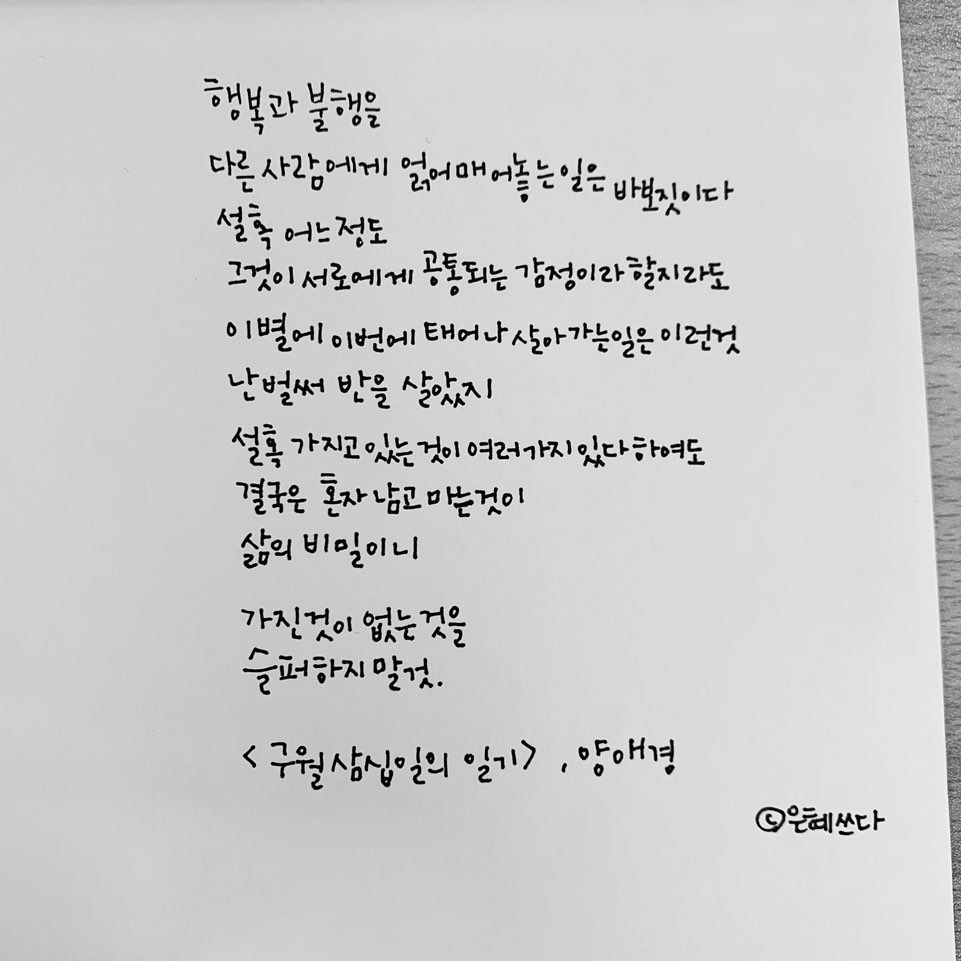 행복과 불행을
다른 사람에게 얽어매어놓는일은 바보짓이다
설혹 어느정도
그것이 서로에게 공통되는 감정이라 할지라도
이별에 이번에 태어나 살아가는일은 이런것
난 벌써 반을 살았지
설혹 가지고 있는 것이 여러가지 있다 하여도
결국은 혼자 남고 마는것이
삶의 비밀이니
가진것이 없는것을
슬퍼하지 말것.
<구월 삼십일의 일기>, 양애경
©은혜쓰다